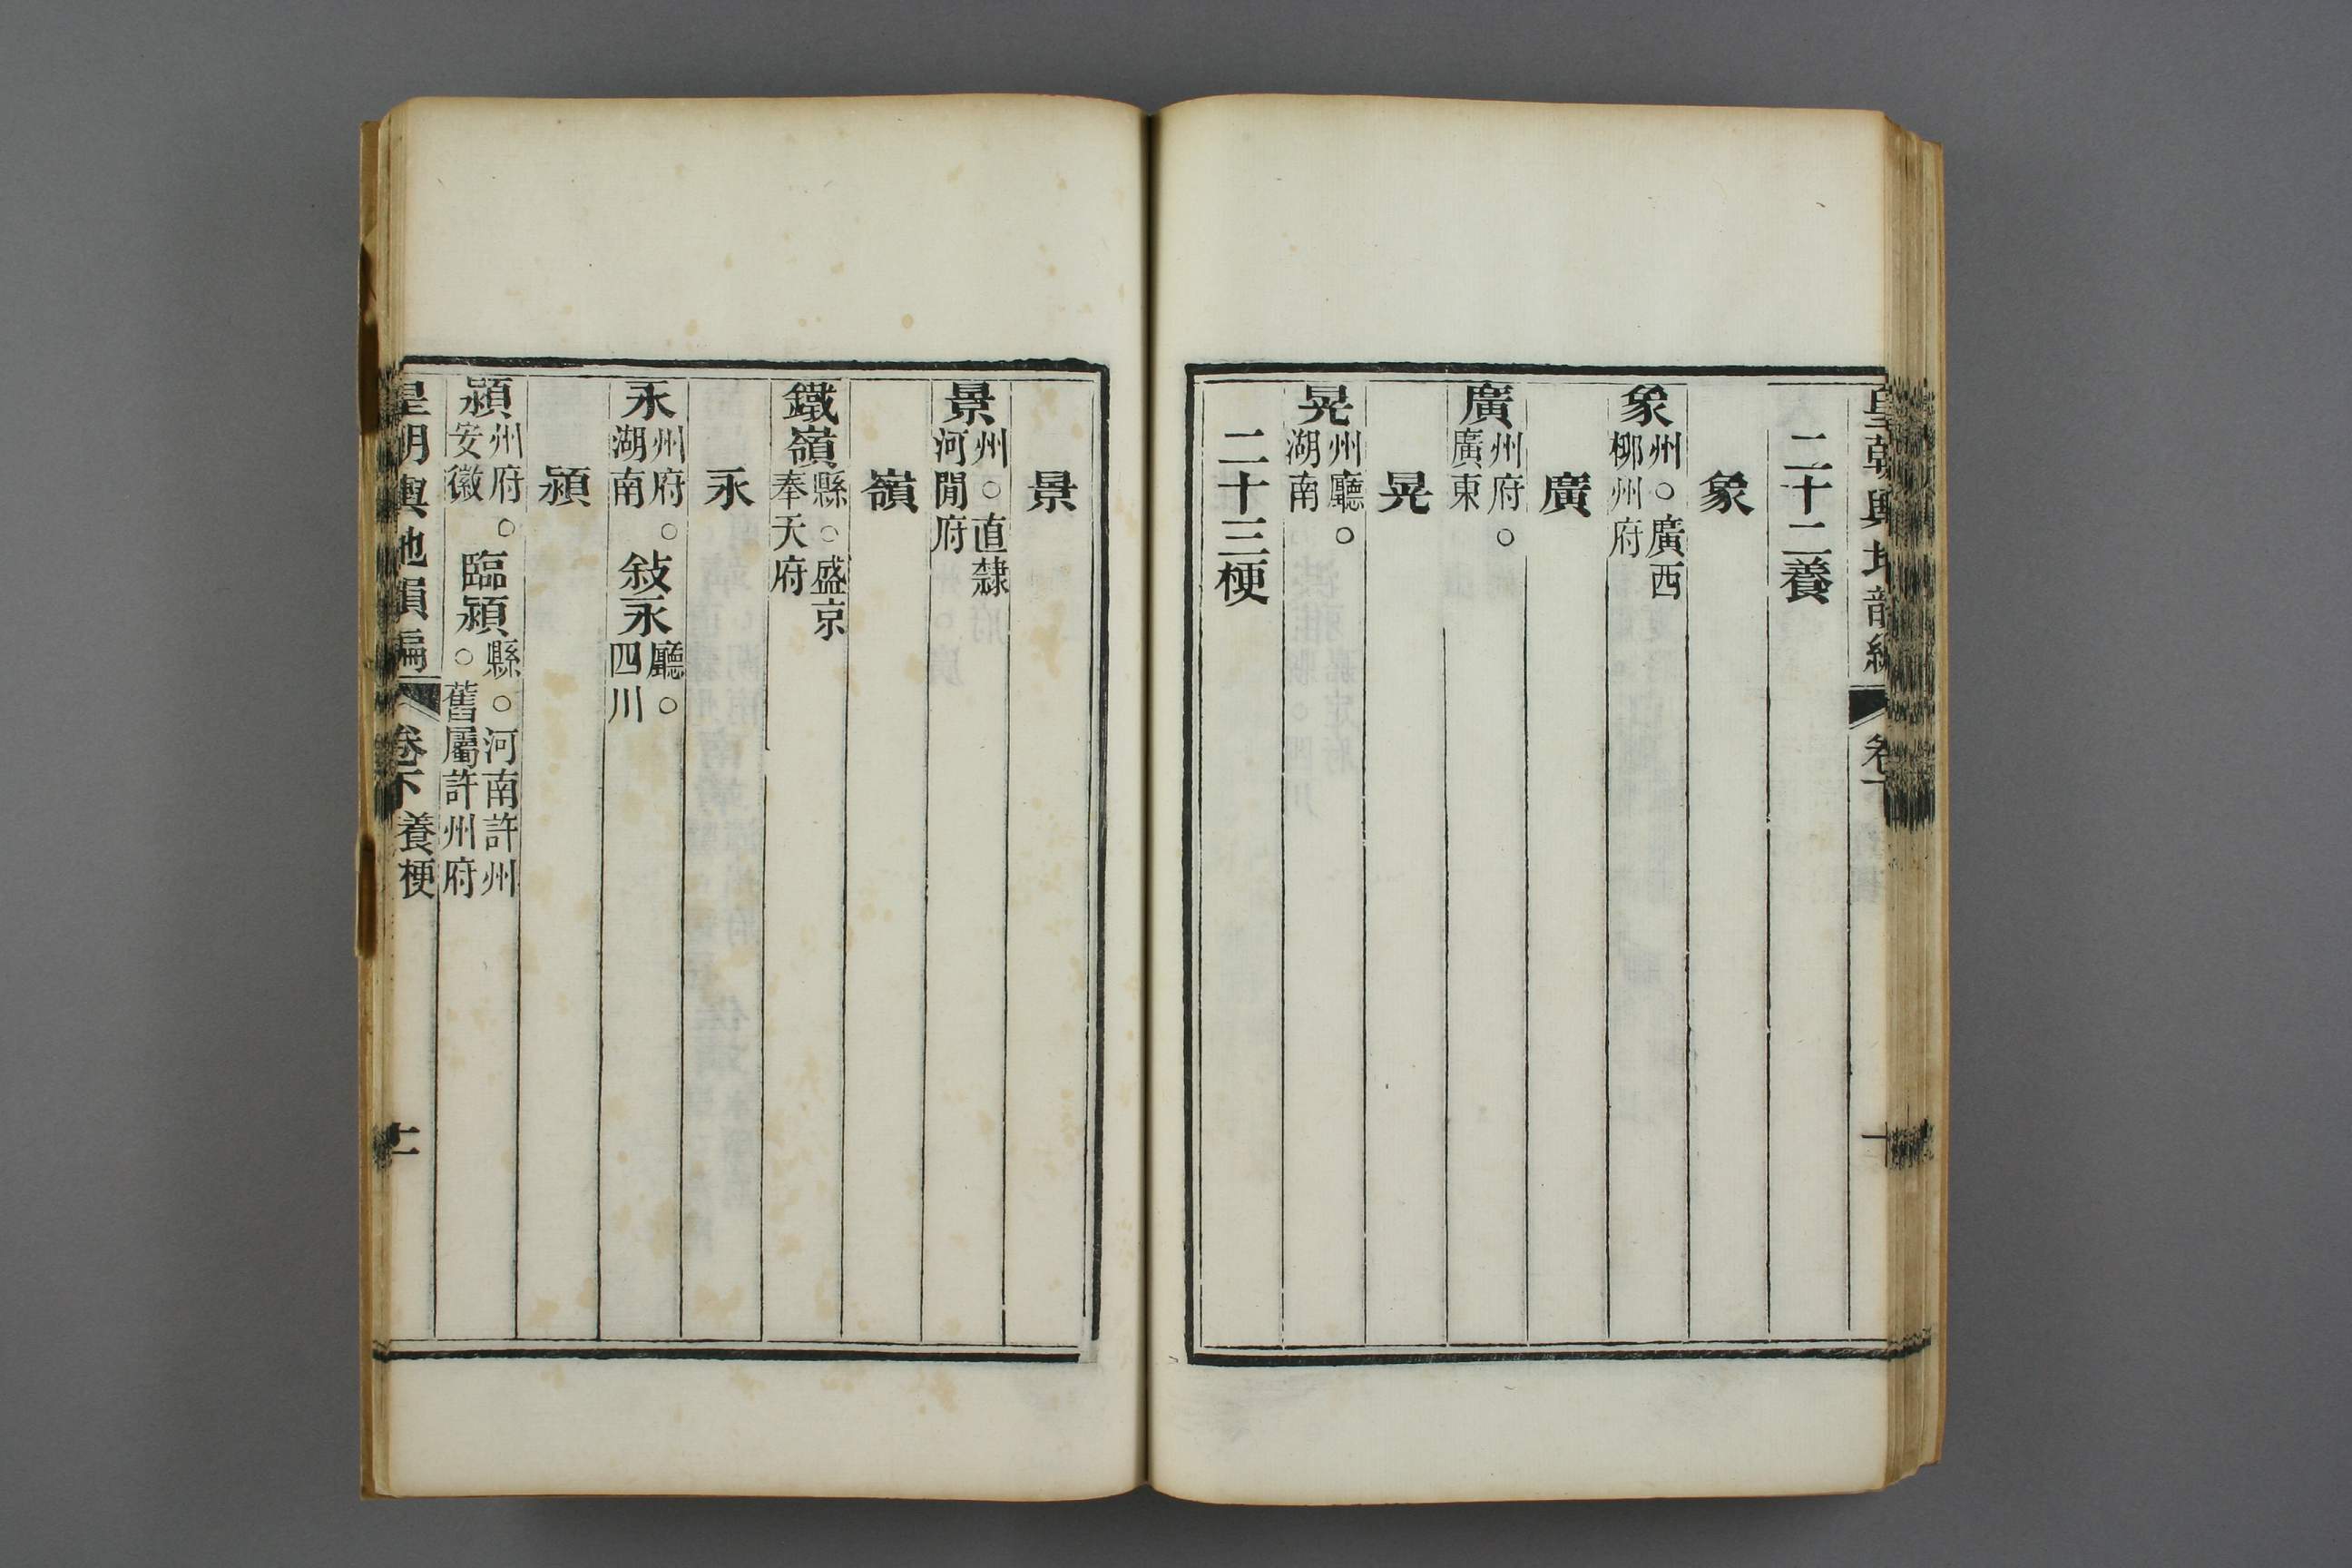 二十二養
象
象州○廣西柳州府
廣
廣州府○廣東
晃
晃州廳○湖南
二十三梗
景
景州○直隸河閒府
嶺
鐵嶺縣○盛京奉天府
永
永州府○湖南 敍永廳○四川
潁
潁州府○安徽 臨潁縣○河南許州○舊屬許州府
皇朝輿地韻編 卷下 養梗